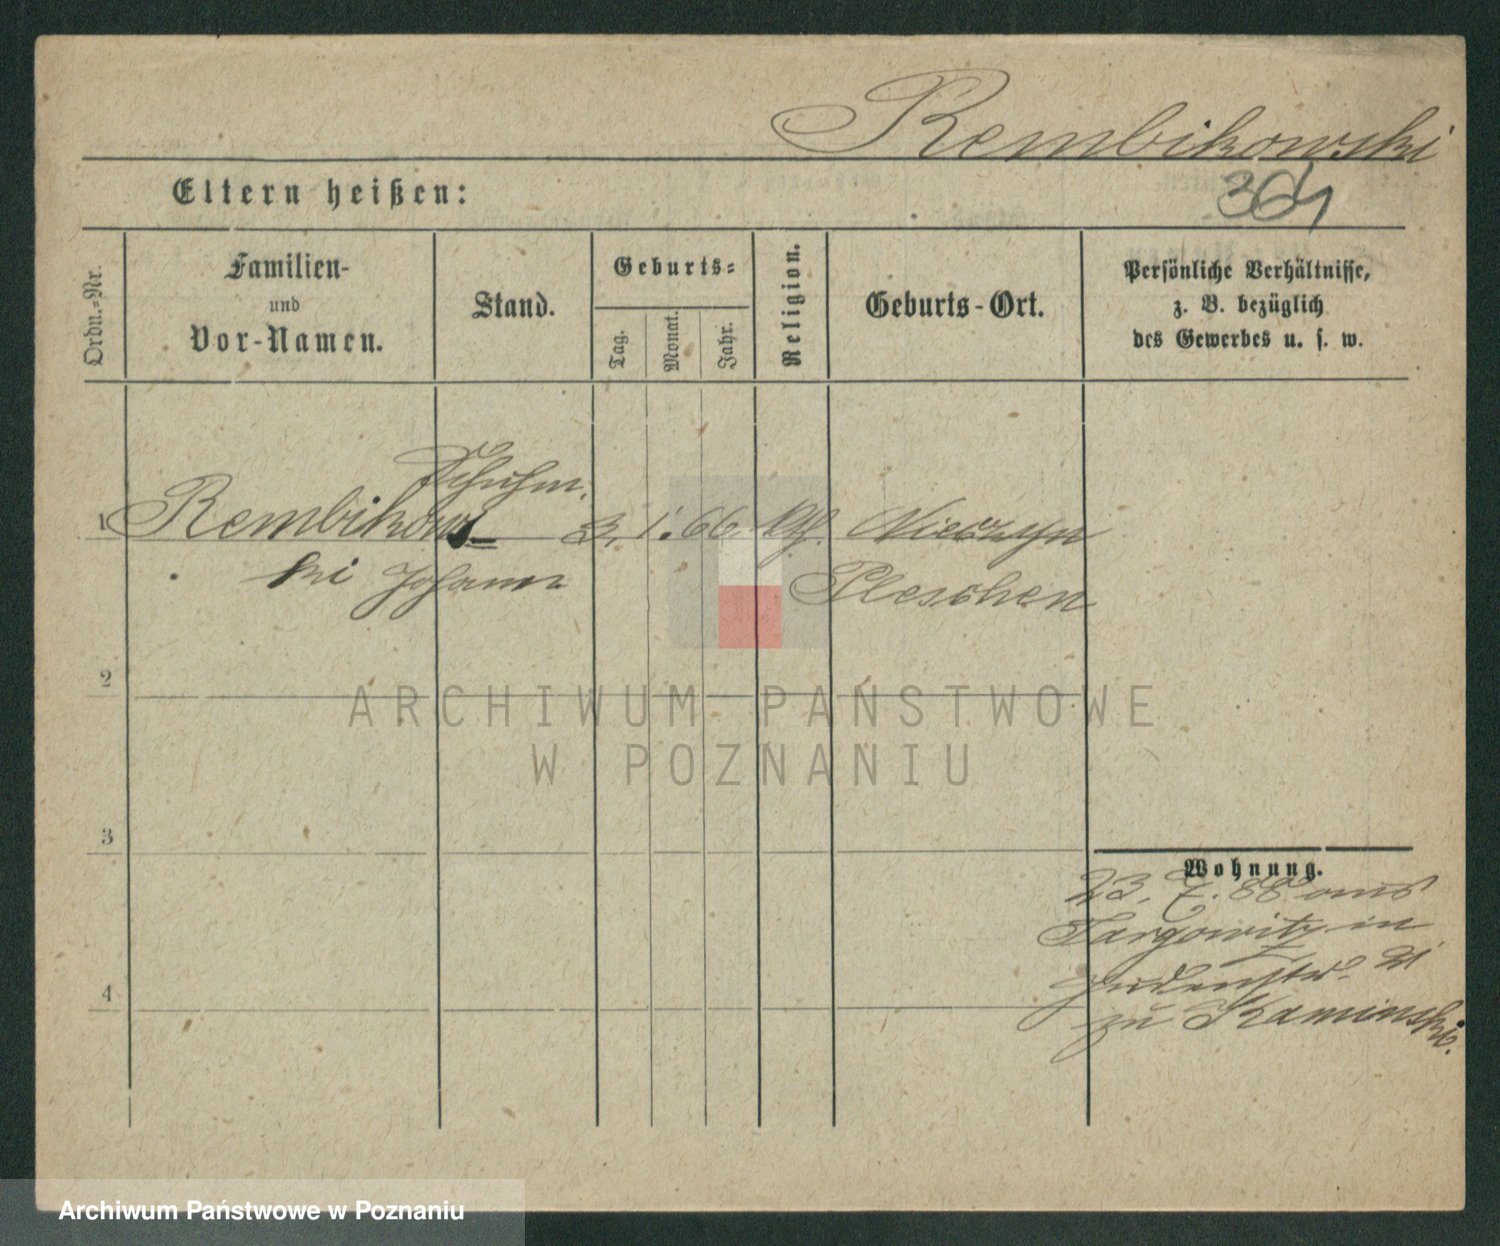 Rembikowski
364
Eltern heißen:
Ordn.-Nr.
Familien-
und
Vor-Namen.
Stand.
Geburts-
Tag.
Monat.
Jahr.
Religion.
Geburts-Ort.
Persönliche Verhältnisse,
z. B. bezüglich
des Gewerbes u. s. w.
Schuhm.
1 Rembikows 3. 1. 66 kth.
ki Johann Pleschen
2
3
4
Wohnung.
23. 7. 88 aus
Targowitz in
Judenstr. 21
zu Kaminski.
ARCHIWUM PAŃSTWOWE
W POZNANIU
Archiwum Państwowe w Poznaniu